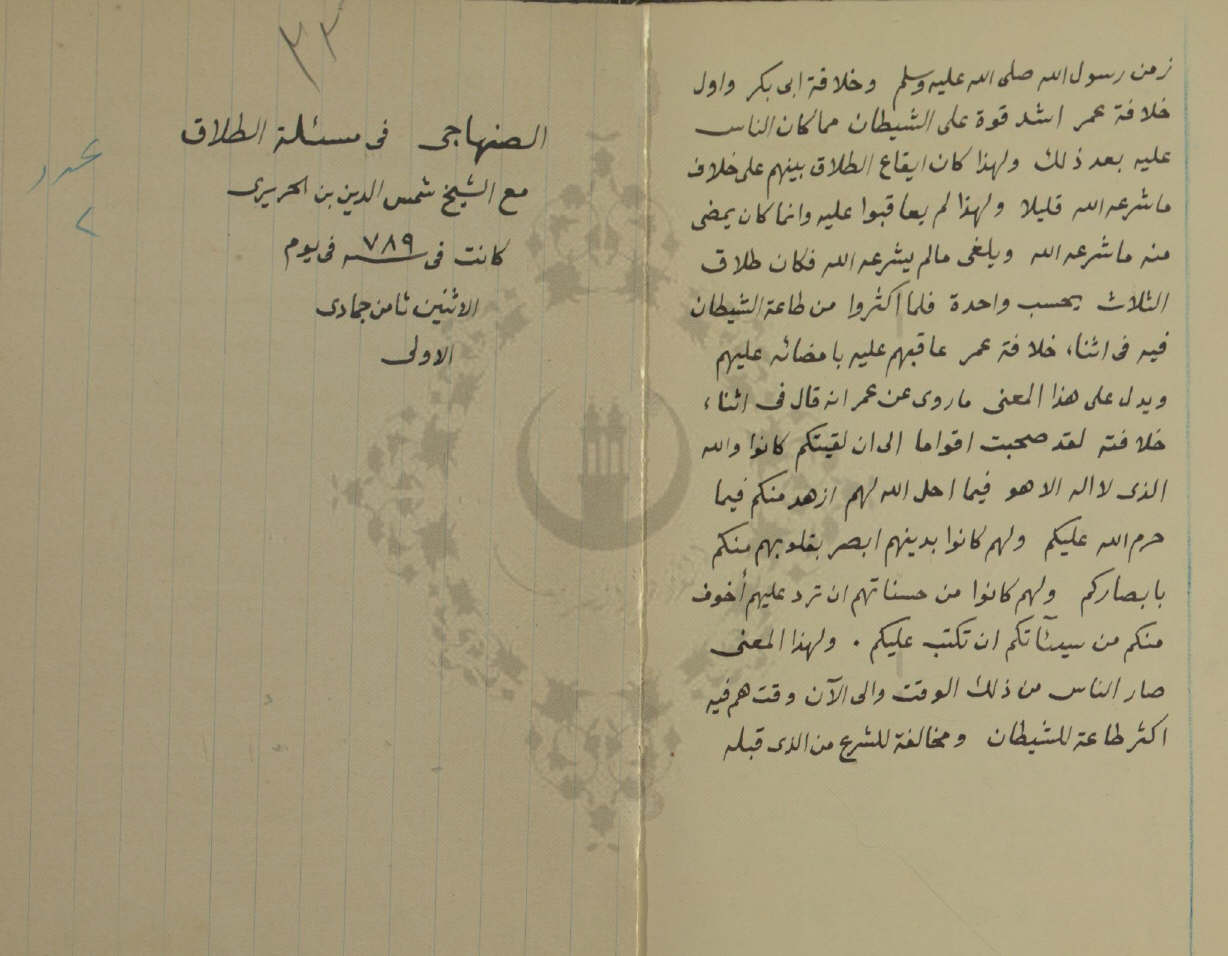 زمن رسول الله صلى الله عليه وسلم وخلافة ابى بكر واول
خلافة عمر اشد قوة على الشيطان مما كان الناس
عليه بعد ذلك ولهذا كان ايقاع الطلاق بينهم على خلاف
ما شرعه الله قليلا ولهذا لم يعاقبوا عليه وانما كان يمضى
منه ما شرعه الله ويلغى مالم يشرعه الله فكان طلاق
الثلاث يحسب واحدة فلما اكثروا من طاعة الشيطان
فيه فى اثناء خلافة عمر عاقبهم عليه بامضائه عليهم
ويدل على هذا المعنى ماروى عن عمر انه قال فى اثناء
خلافته لقد صحبت اقواما الى ان لقيتكم كانوا والله
الذى لا اله الا هو فيما احل الله لهم ازهد منكم فيما
حرم الله عليكم ولهم كانوا بدينهم ابصر بقلوبهم منكم
بابصاركم ولهم كانوا من حسناتهم ان ترد عليهم أخوف
منكم من سيئآتكم ان تكتب عليكم . ولهذا المعنى
صار الناس من ذلك الوقت والى الآن وقت هم فيه
اكثر طاعة للشيطان ومخالفة للشرع من الذى قبله
٣٣
الصنهاجى فى مسئلة الطلاق
مع الشيخ شمس الدين بن الحريرى
كانت فى سنه ٧٨٩ فى يوم
الاثنين ثامن جمادى
الاولى
عدد
٢